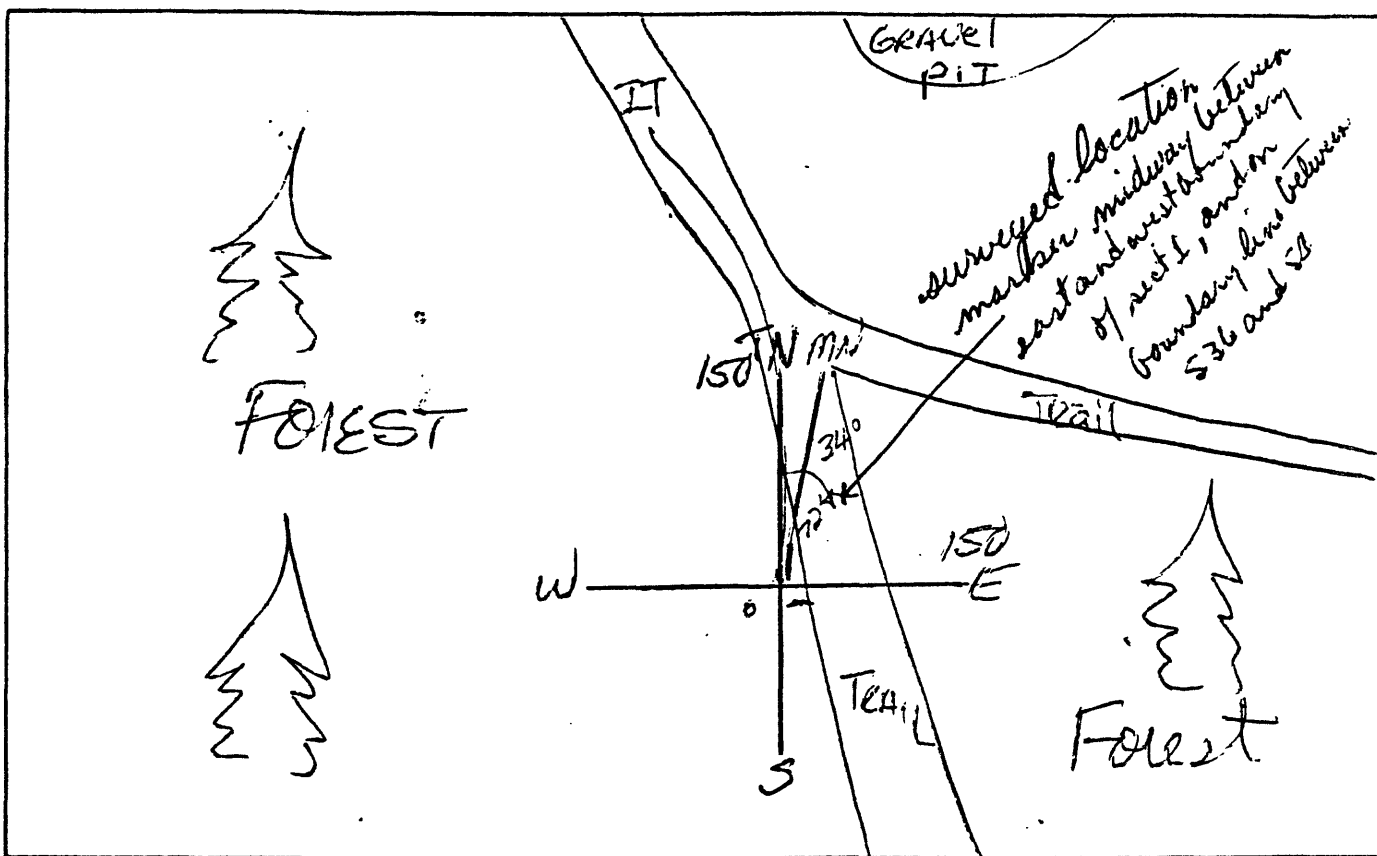 GRAVEl
PiT
IT
surveyed location
marker midway between
east and west boundary
of sect 1, and on
boundary line between
S36 and S1
150' N MN
34°
Trail
FOREST
W
150'
E
0
S
TRAIL
Forest